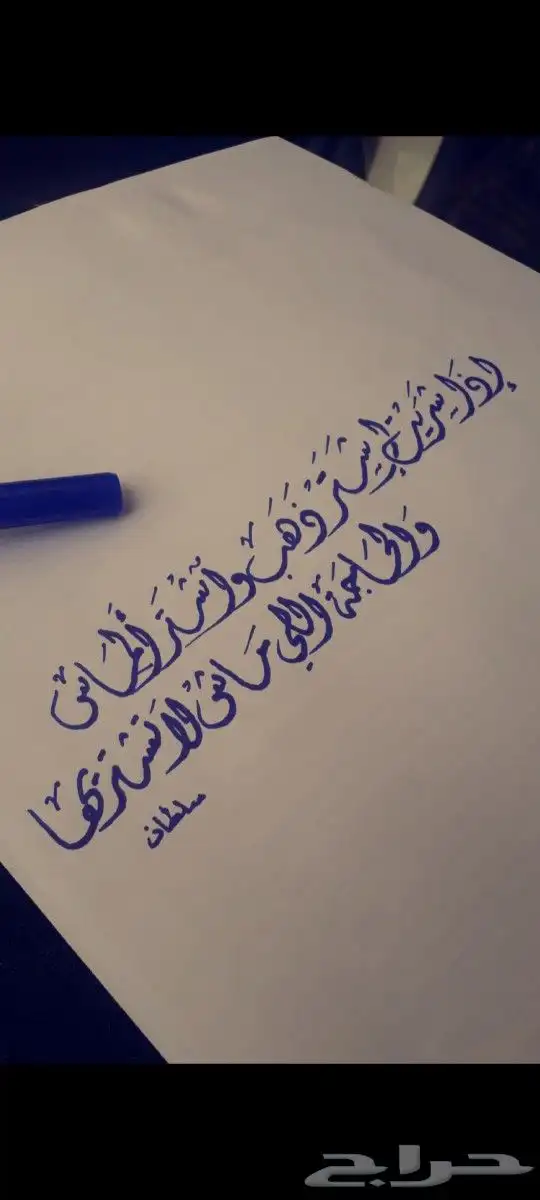 إذا شريت إشتر ذهب واشتر ألماس
والحاجة اللي ماش لا تشتريها
سلطان
حراج